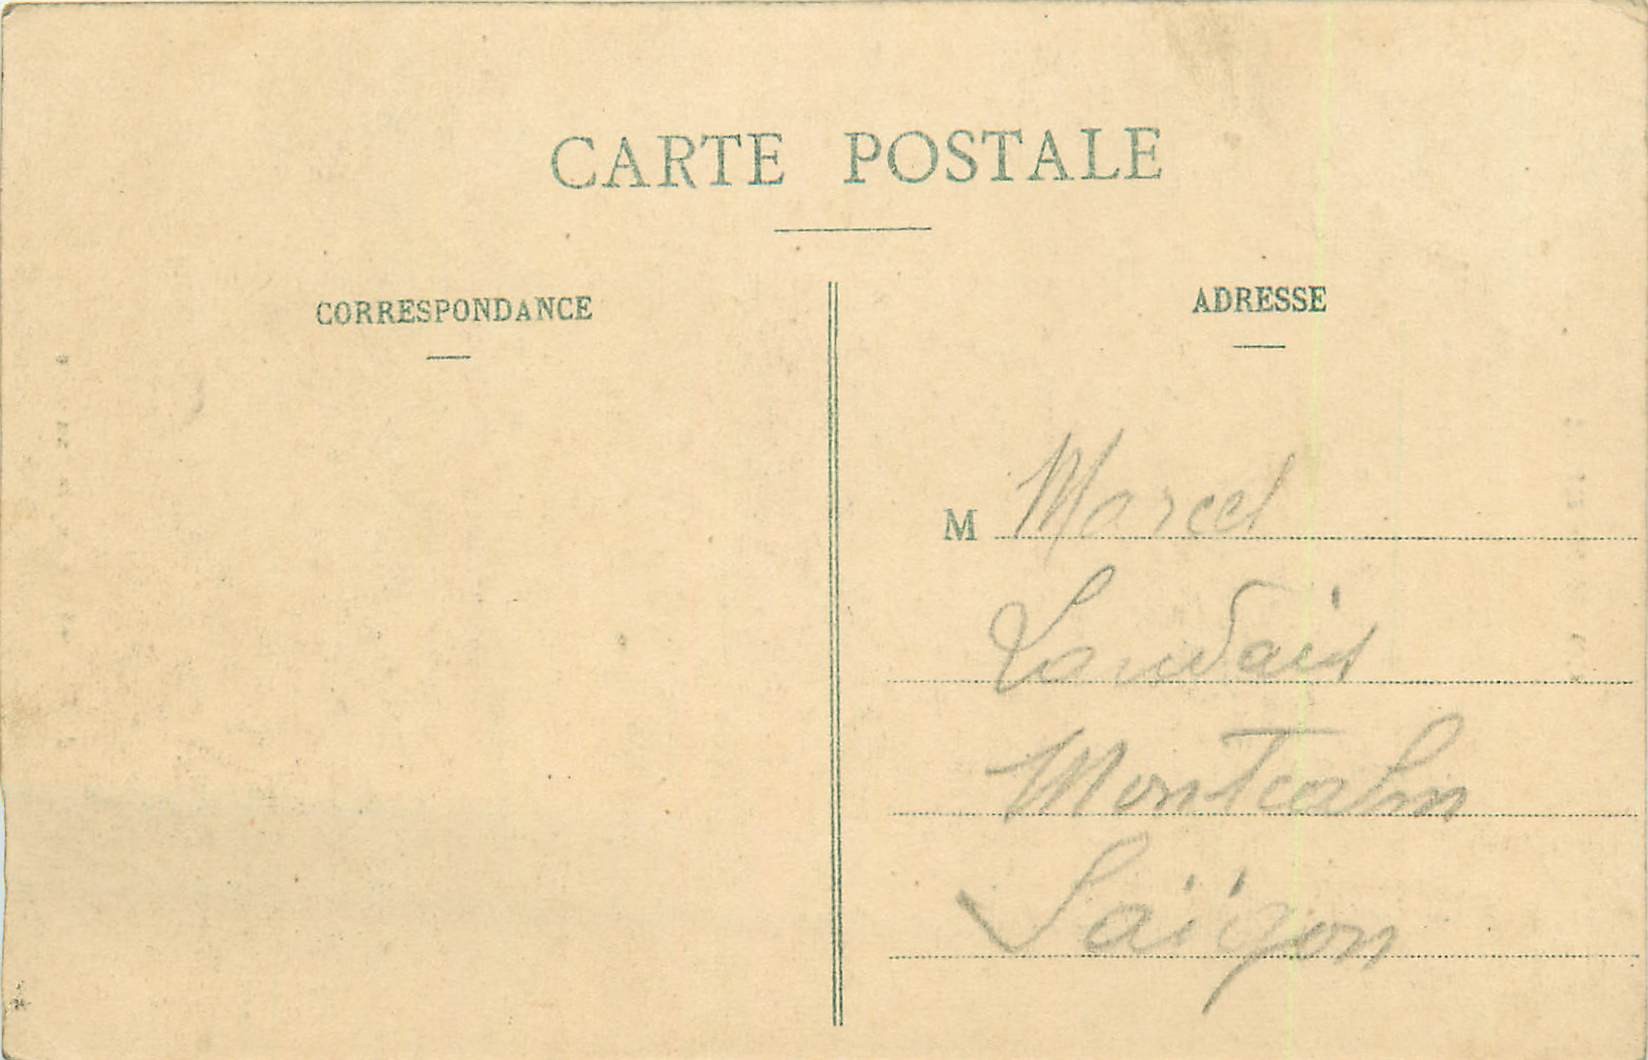 CARTE POSTALE
CORRESPONDANCE
ADRESSE
M Marcel
Landais
Montcalm
Saïgon